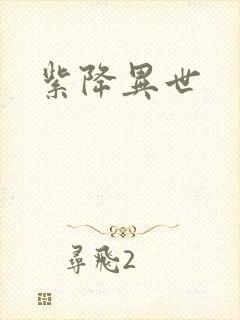 紫降異世
尋飛2